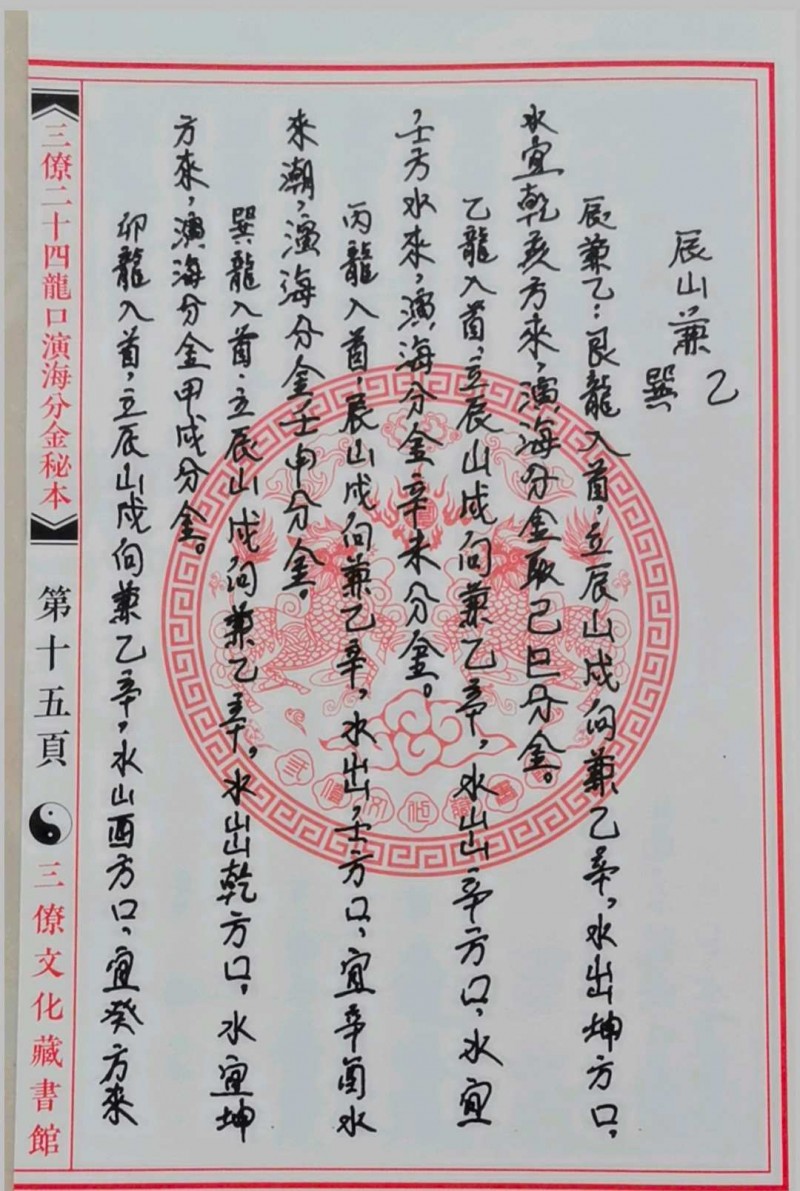 辰山兼乙
巽
辰兼乙：艮龍入首，立辰山戌向兼乙辛，水出坤方口，
水宜乾亥方來，演海分金取己巳分金。
乙龍入首，立辰山戌向兼乙辛，水出辛方口，水宜
，壬方水來，演海分金辛未分金。
丙龍入首，辰山戌向兼乙辛，水出，壬方口，宜辛酉水
來潮，演海分金壬申分金。
巽龍入首，立辰山戌向兼乙辛，水出乾方口，水宜坤
方來，演海分金甲戌分金。
卯龍入首，立辰山戌向兼乙辛，水出酉方口，宜癸方來
《三僚二十四龍口演海分金秘本》
第十五頁
三僚文化藏書館